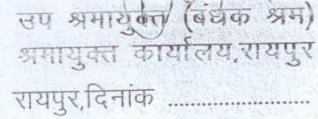 उप श्रमायुक्त (बंधक श्रम)
श्रमायुक्त कार्यालय,रायपुर
रायपुर,दिनांक ........................